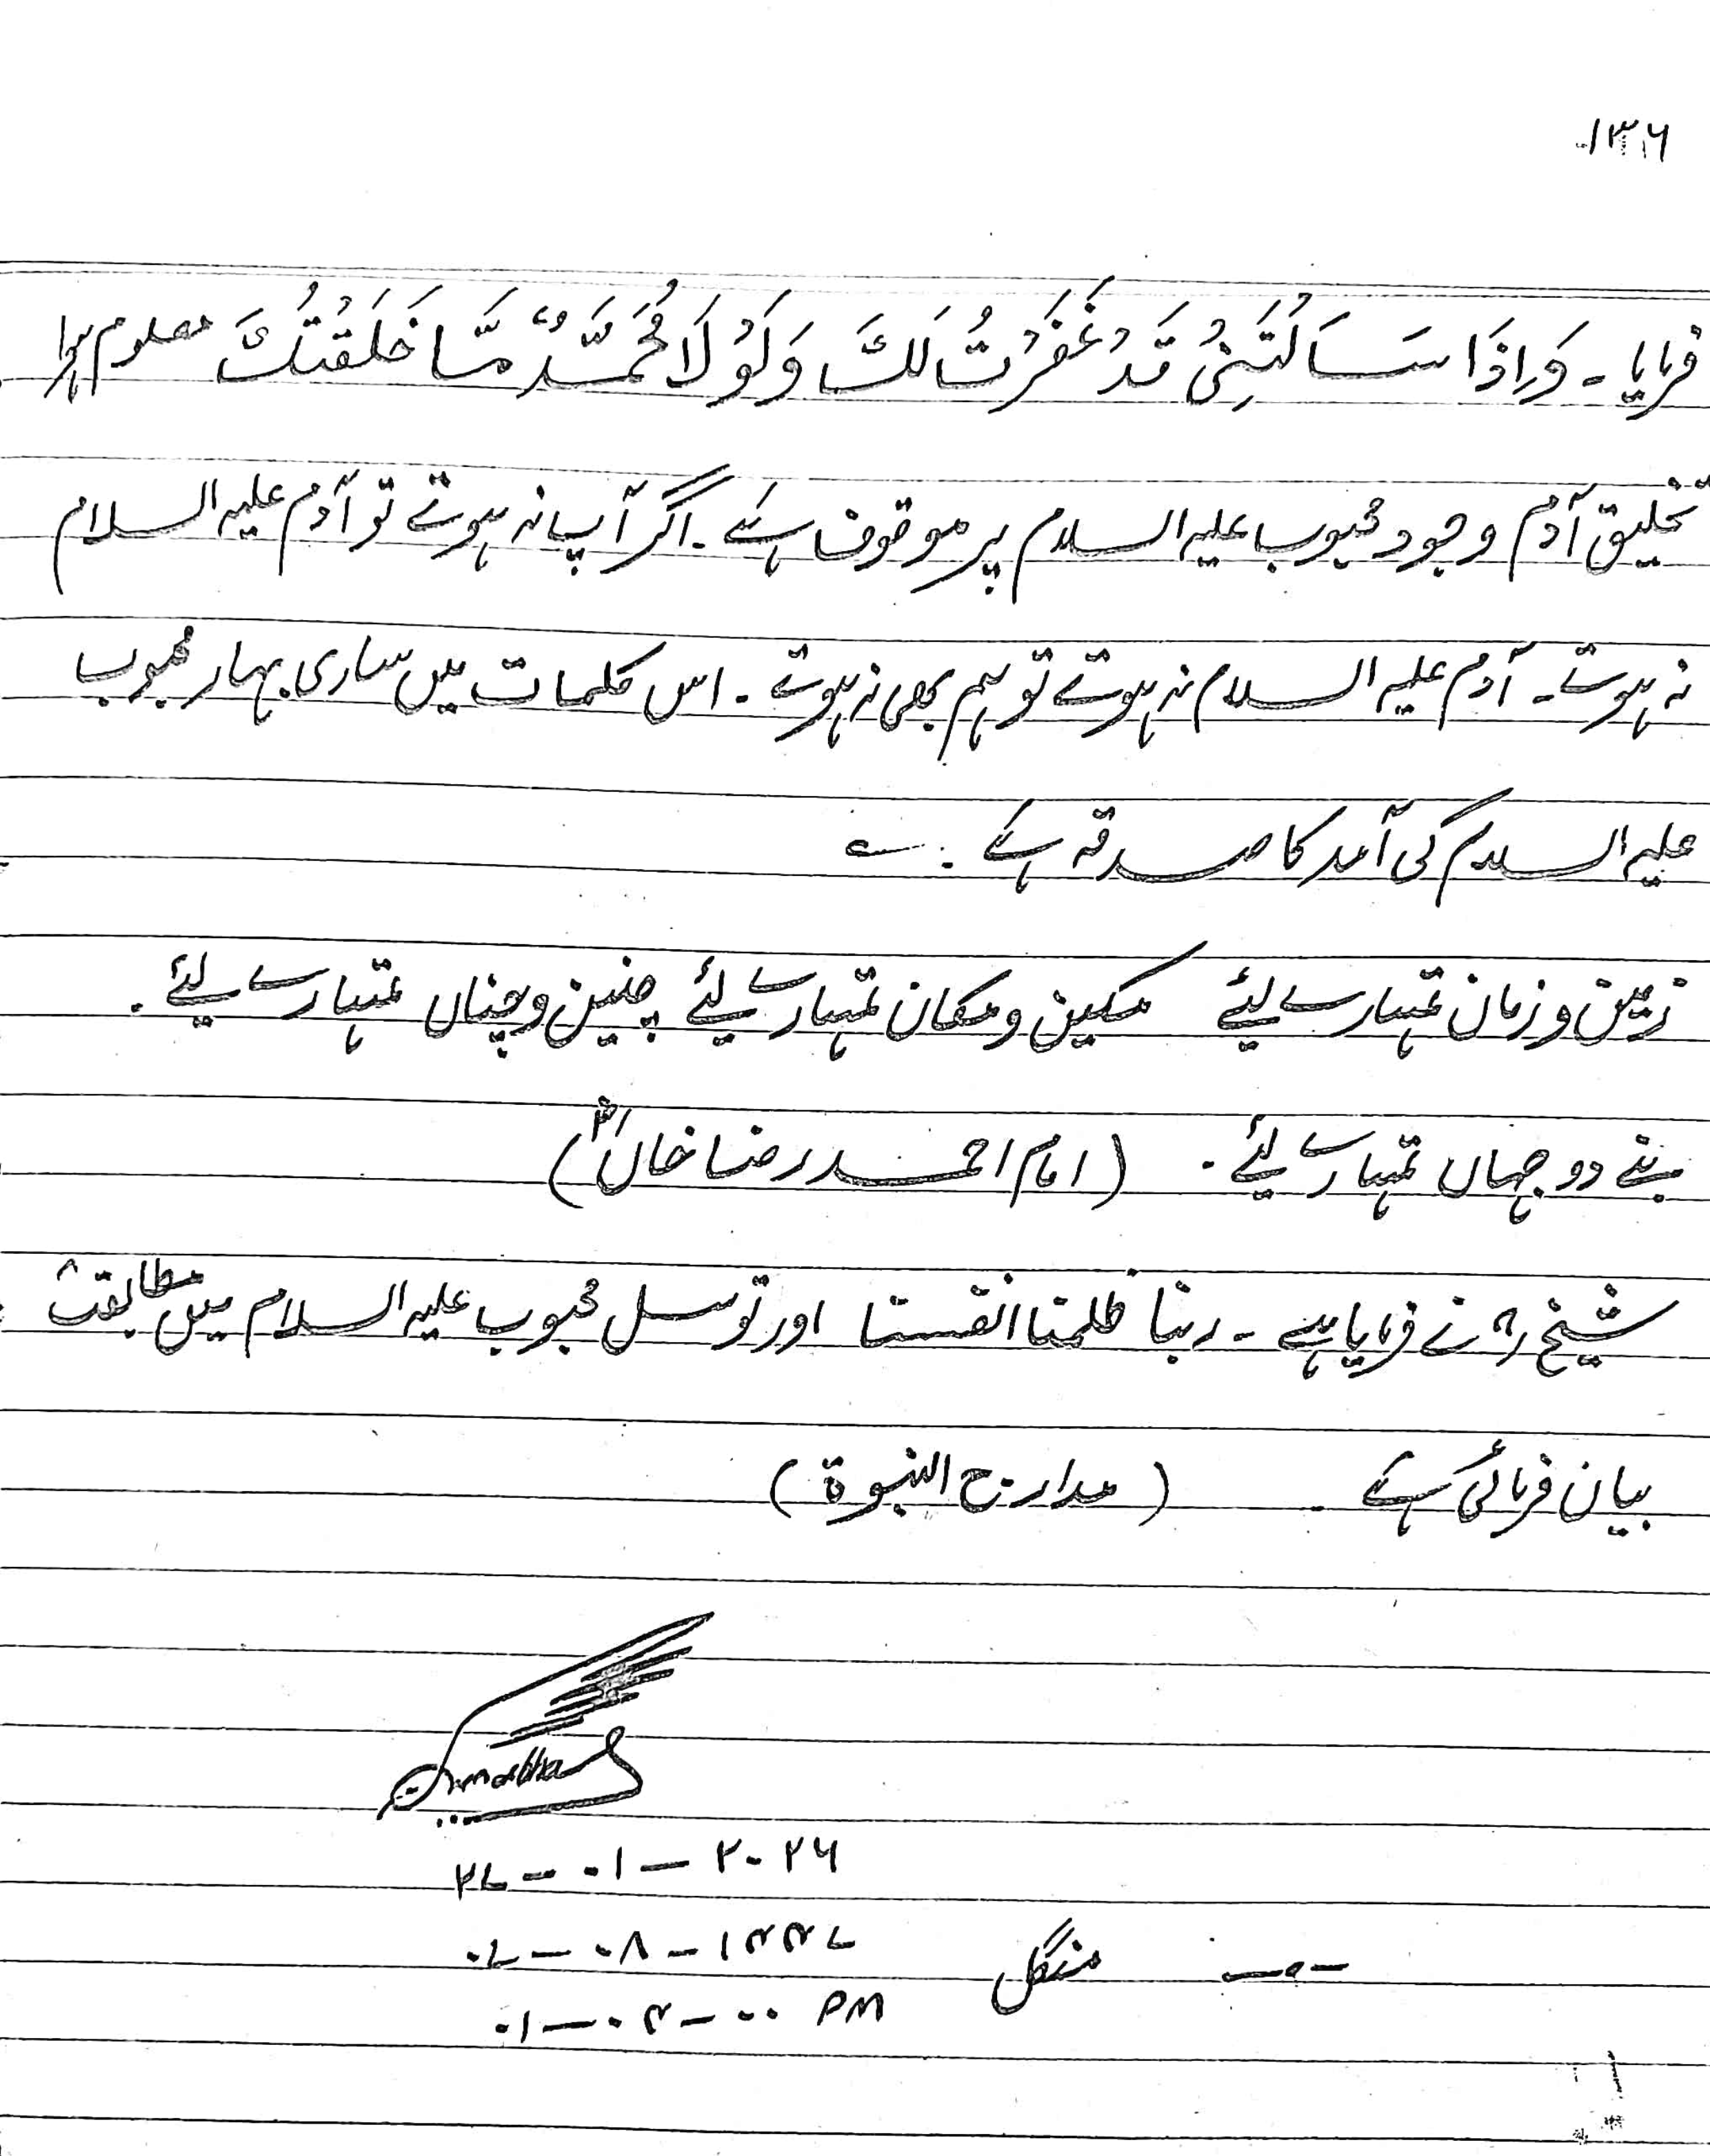 ۱۳۶
فرمایا ۔ وَاِذَا سَـَالْتَنِیْ قَدْ غَفَرْتُ لَکَ وَلَوْلَا مُحَمَّدٌ مَّا خَلَقْتُکَ معلوم ہوا
تخلیق آدم وجود محبوب علیہ السلام پر موقوف ہے ۔ اگر آپ نہ ہوتے تو آدم علیہ السلام
نہ ہوتے ۔ آدم علیہ السلام نہ ہوتے تو ہم بھی نہ ہوتے ۔ اس کلمات میں ساری بہار محبوب
علیہ السلام کی آمد کا صدقہ ہے ۔
زمین و زمان تمہارے لئے مکین و مکان تمہارے لئے چنین و چناں تمہارے لئے ۔
بنے دو جہاں تمہارے لئے ۔ ( امام احمد رضا خاںؒ )
شیخؒ نے فرمایا ہے ۔ ربنا ظلمنا انفسنا اور توسل محبوب علیہ السلام میں مطابقت
بیان فرمائی ہے ۔ ( مدارج النبوۃ )
۲۷ – ۰۱ – ۲۰۲۶
۰۷ – ۰۸ – ۱۴۴۷
منگل
۰۱ – ۰۴ – ۰۰ PM